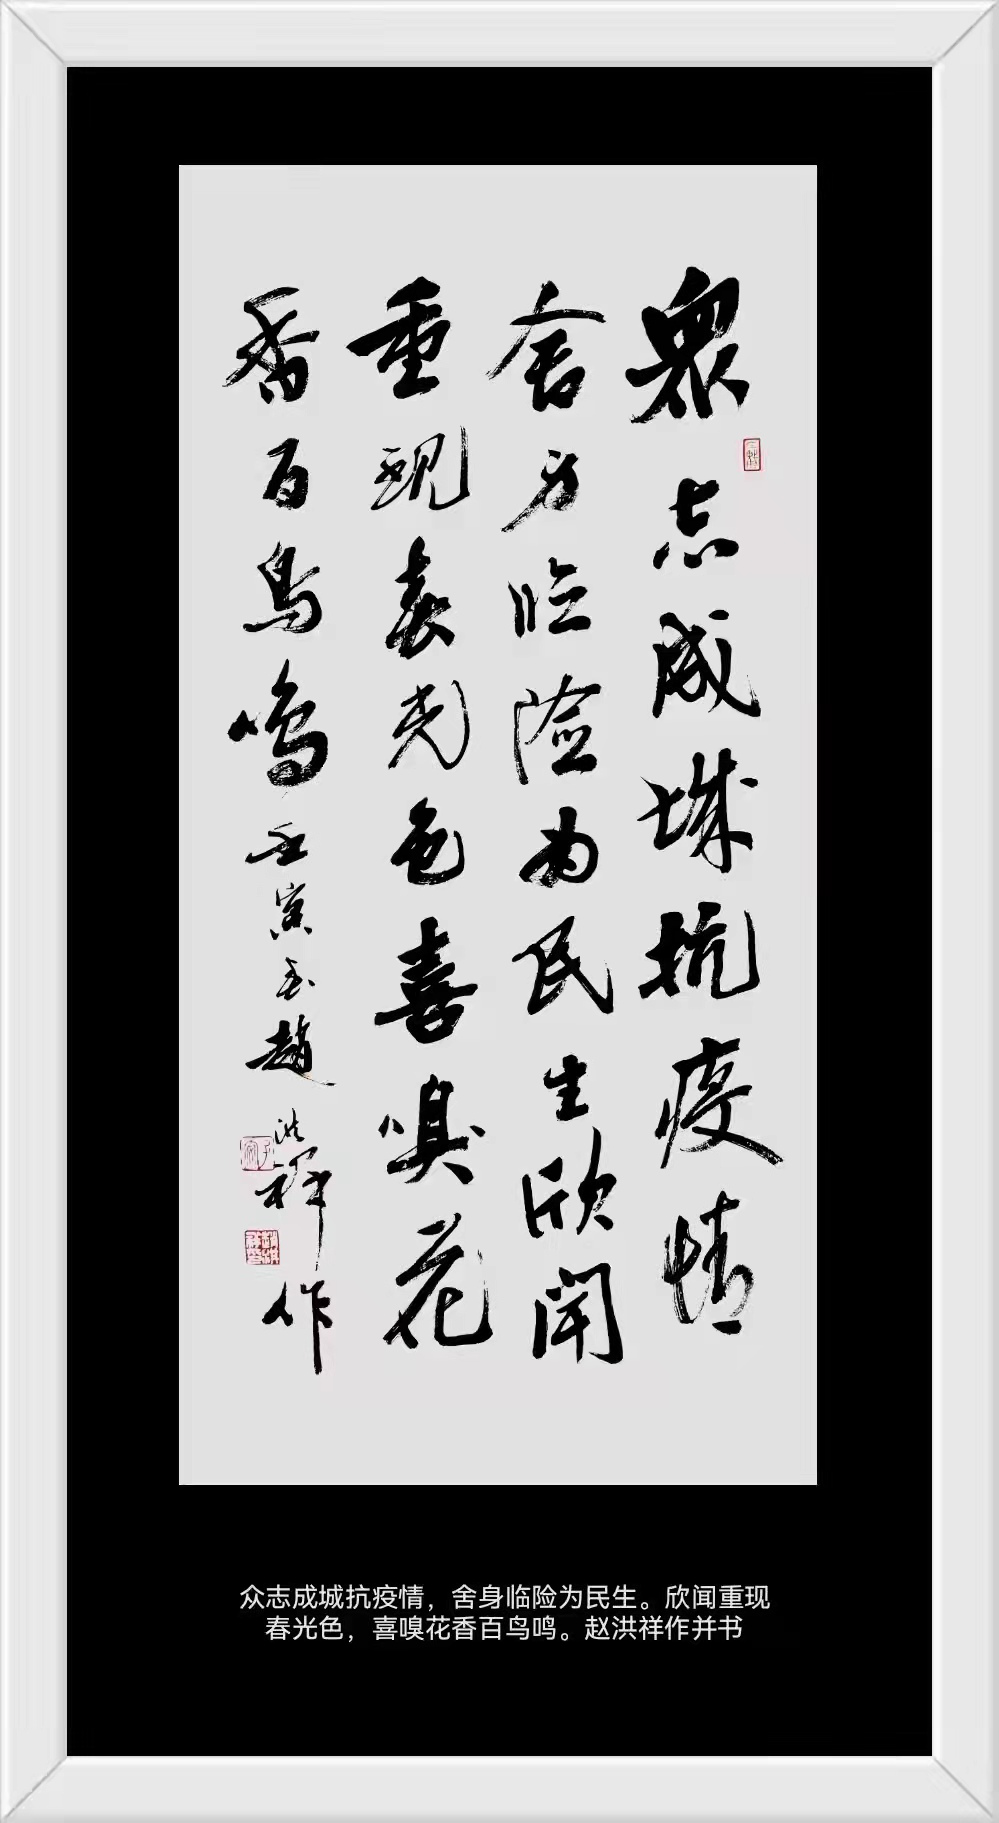 眾志成城抗疫情
舍身临险为民生欣闻
重现春光色喜嗅花
香百鸟鸣壬寅春赵洪祥作
众志成城抗疫情，舍身临险为民生。欣闻重现
春光色，喜嗅花香百鸟鸣。赵洪祥作并书